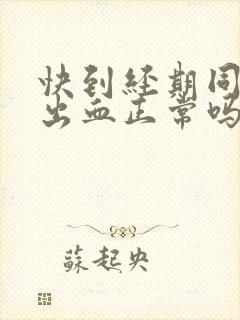 快到经期同
出血正常吗
蘇起央